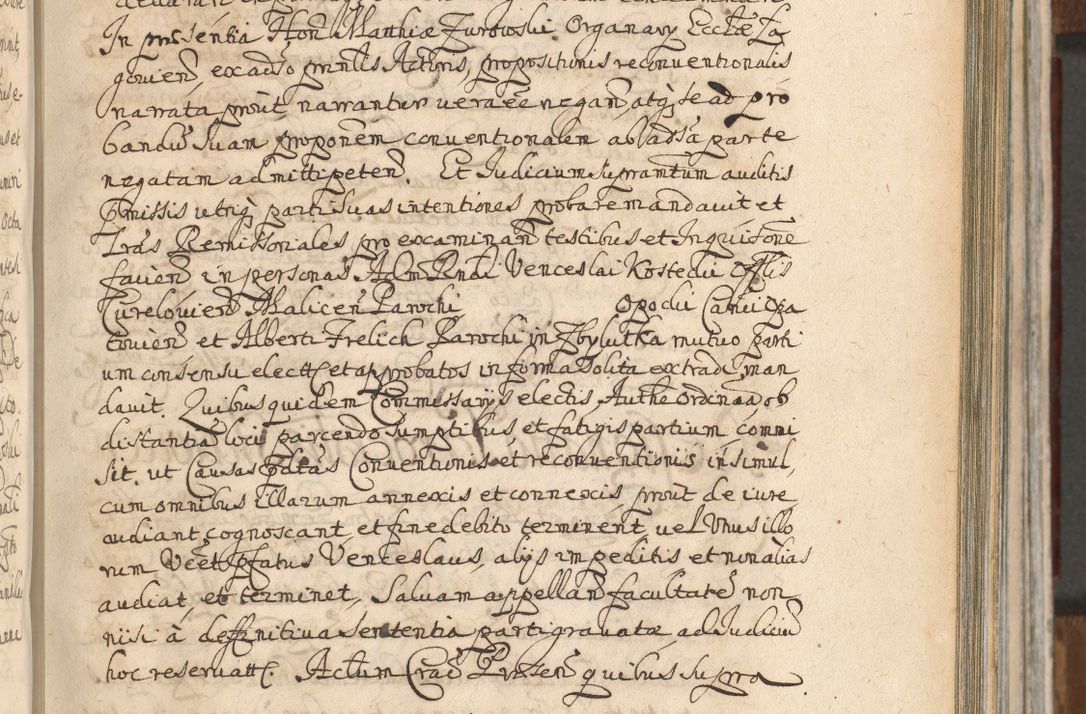 In pnsentia Hon Matthiæ Zurowski Organarÿ Ecclæ Za
govien, ex adso pnntis Actoris, propositionis reconventionalis
narrata, prout narrantur vera ee negan, atq se ad pro
bandu suam proponem conventionalem ab adsa parte
negatam admitti peten. Et Judicium supranotum auditis
præmissis utriq parti suas intentiones probare mandavit et
Lras Remissoriales pro examinan testibus et Inquisitione
facien in personas Adm Rndi Venceslai Kostecki Offlis
Curelovien Malicen Parochi Opocki Canci Za
tovien et Alberti Frelich Parochi in Zbylutka mutuo parti
um consensu electt et approbatos in forma solita extradi man
davit. Quibus quidem Commissarÿs electis, Authe Ordinaa, ob
distantia loci parcendo sumptibus, et fatigis partium commi
sit, ut Causas prætas Conventionis et reconventionis insimul,
cum omnibus illarum annexis et connexis, prout de iure
audiant, cognoscant, et fine debito terminent, vel Unus illo
rum Veet pfatus Venceslaus, alÿs impeditis et non alias
audiat, et terminet, Salvam appellan facultate non
nisi à deffinitiva sententia parti gravatæ ad Judiciu
hoc reservatt. Actum Crac Præsen quibus supra